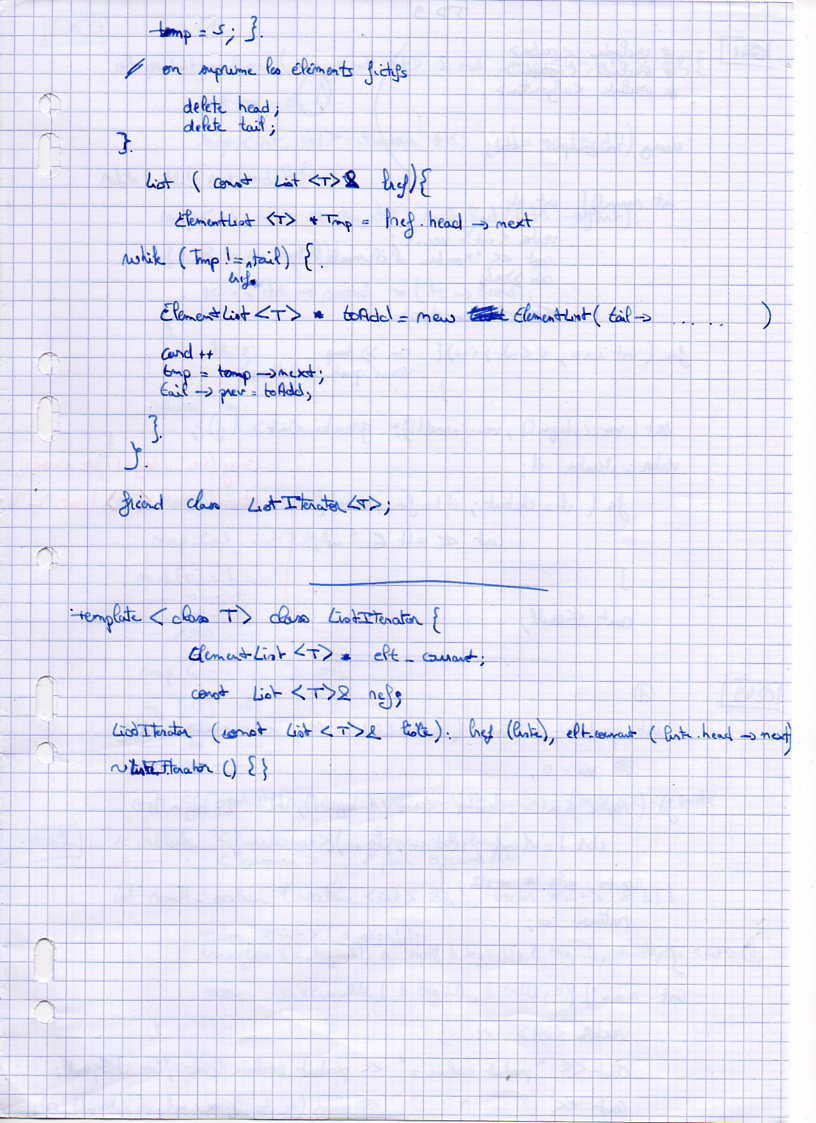 temp = s; }.
// on suprime les éléments fictifs
delete head;
delete tail;
}.
List ( const List <T>& lref){
ElementList <T> * Tmp = lref.head → next
while (Tmp != lref.tail) {.
ElementList <T> * toAdd = new ElementList( tail → ...... )
card ++
tmp = temp → next;
tail → prev = toAdd;
}.
}.
friend class ListIterator <T>;
template < class T> class ListIterator {
ElementList <T> * elt_courant;
const List <T>& ref;
ListIterator (const List <T>& liste): lref (liste), elt_courant (liste.head → next)
~ListeIterator () {}